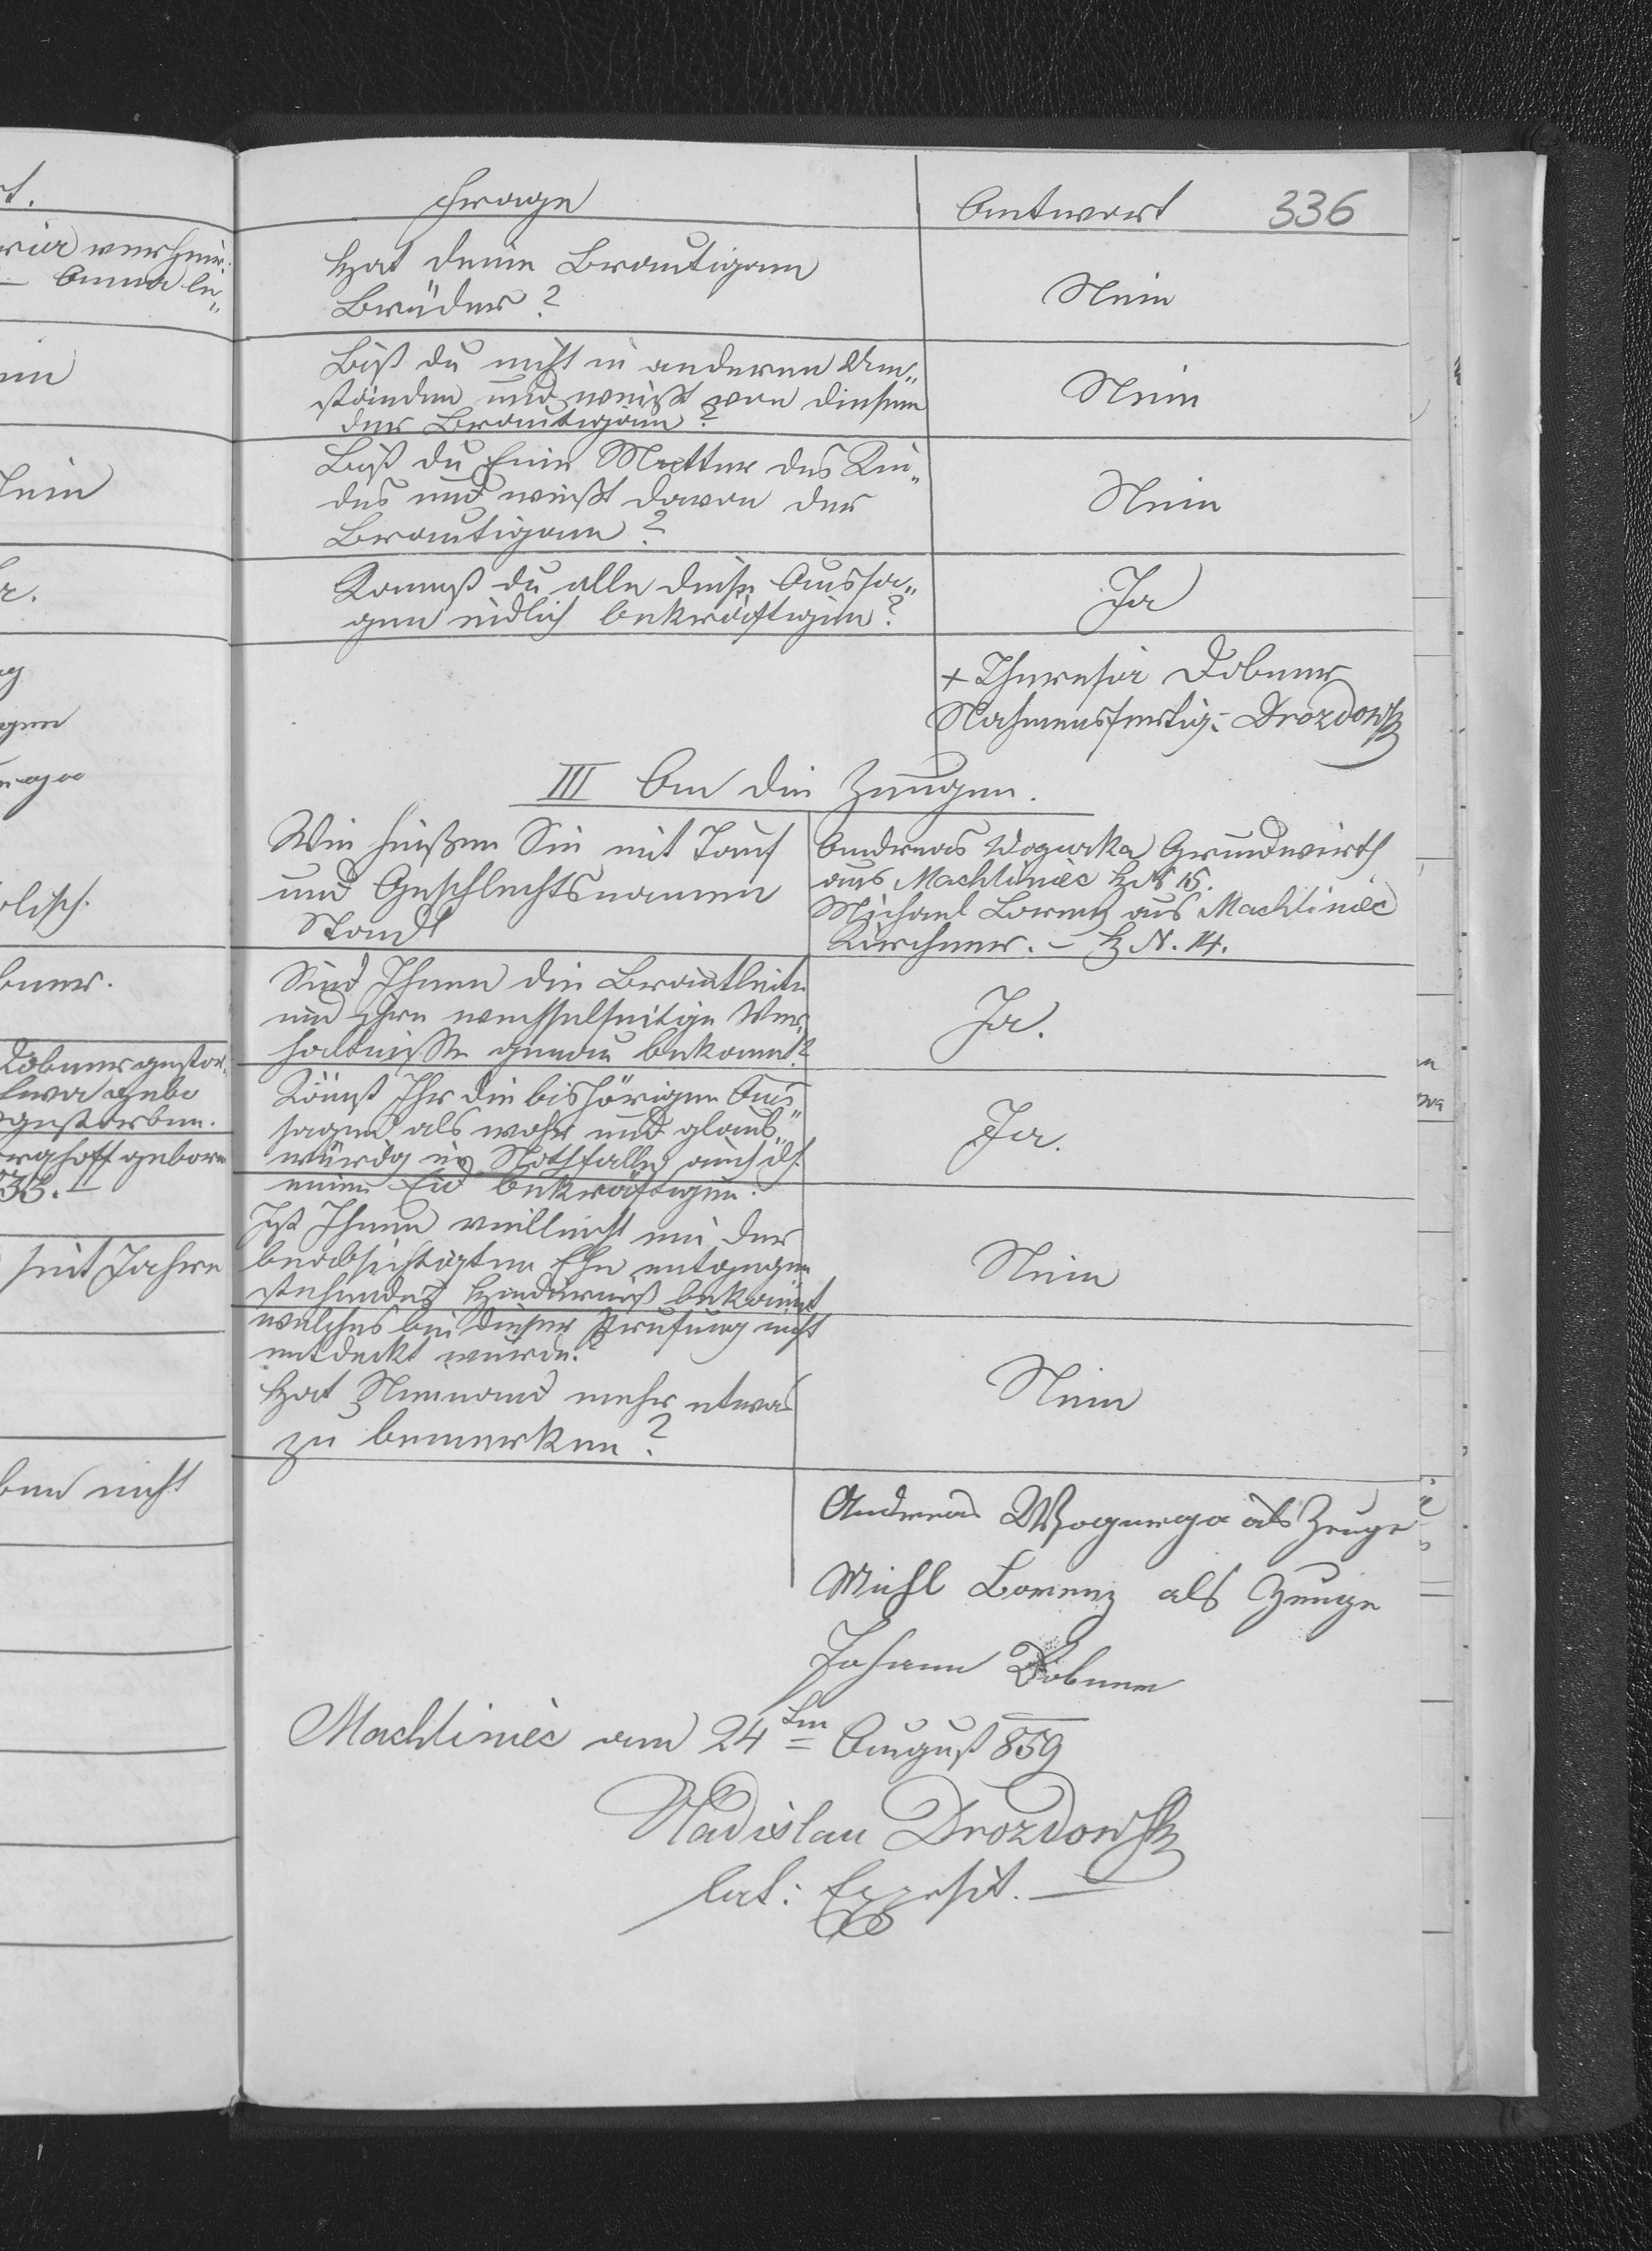 Frage
Antwort 336
Hat deine Brautigam
Brüder?
Nein
Bist du nicht in anderen Um„
ständen und weißt von diesem
der Brautigam?
Nein
Bist du Eine Mutter des Kin„
des und weißt davon der
Brautigam?
Nein
Kannst du alle diese Aussa„
gen eidlich bekräftigen?
Ja
+ Theresia Dobner
Nahmensfertig: Drozdowski
III An die Zeugen.
Wie heißen Sie mit Tauf
und Geschlechtsnamen
Stand
Andreas Wogurka Grundwirth
aus Machliniec HN 15.
Michael Lorenz aus Machliniec
Kirchner. – H N. 14.
Sind Ihnen die Brautleite
und ihre wechselseitige Ver„
haltnisse genau bekannt?
Ja.
Könnt Ihr die bishörigen Aus„
sagen als wahr und glaub„
würdig im Nothfalle auch
einem Eid bekräftigen?
Ja.
Ist Ihnen vielleicht ein der
beabsichtigten Ehe entgegen
stehendes Hinderniß bekannt
welches bei dieser Prüfung nicht
entdeckt wurde?
Nein
Hat Niemand mehr etwas
zu bemerken?
Nein
Andreas Wogurga als Zeuge
Michl Lorenz als Zeuge
Johann Dobner
Machliniec am 24ten August 859
Wladislau Drozdowski
lat: Exposit.